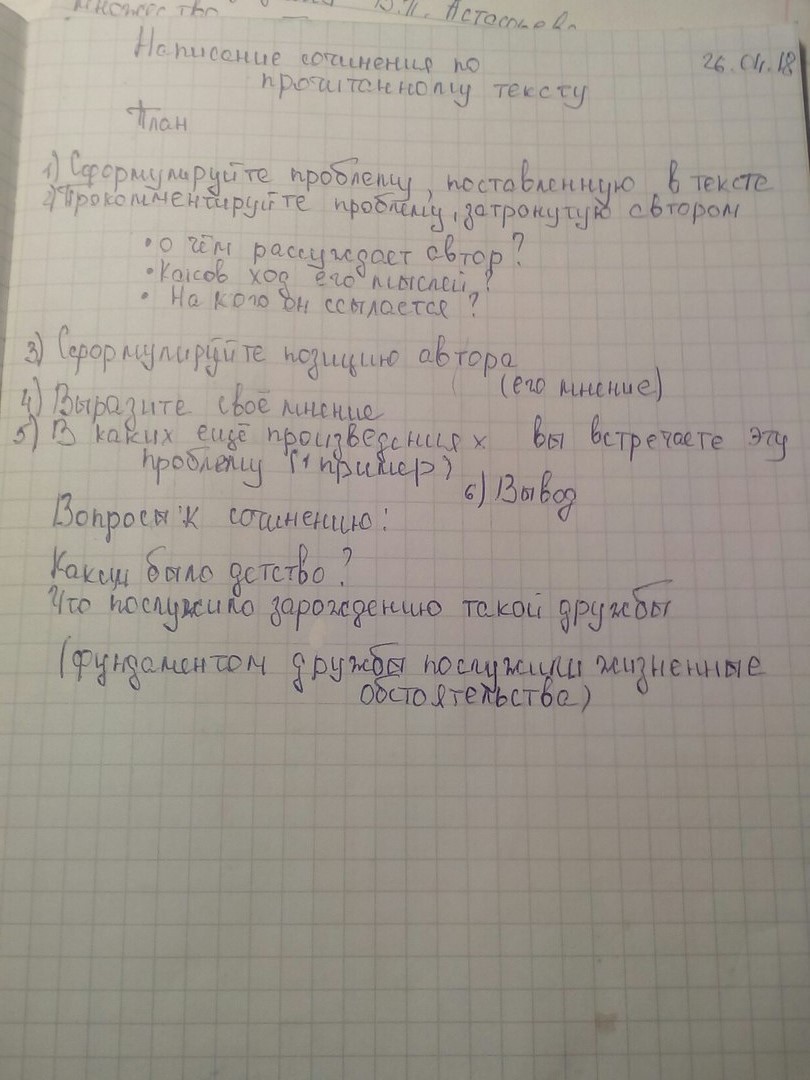 множество В.П. Астафьева
Написание сочинения по 26.04.18
прочитанному тексту
План
1) Сформулируйте проблему, поставленную в тексте
2) Прокомментируйте проблему, затронутую автором
• О чём рассуждает автор?
• Каков ход его мыслей?
• На кого он ссылается?
3) Сформулируйте позицию автора
(его мнение)
4) Выразите своё мнение
5) В каких ещё произведениях вы встречаете эту
проблему (1 пример)
6) Вывод
Вопросы к сочинению:
Каким было детство?
Что послужило зарождению такой дружбы
(фундаментом дружбы послужили жизненные
обстоятельства)